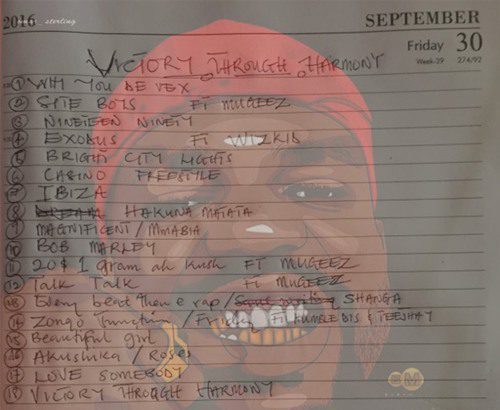 2016
sterling
SEPTEMBER
Friday 30
Week-39 274/92
VICTORY THROUGH HARMONY
1 WHY YOU DE VEX
2 SITE BOYS FT MUGEEZ
3 NINETEEN NINETY
4 EXODUS Ft WIZKID
5 BRIGHT CITY LIGHTS
6 CASINO FREESTYLE
7 IBIZA
8 HAKUNA MATATA
9 MAGNIFICENT / MMABIA
10 BOB MARLEY
11 20$ 1 gram ah kush FT MUGEEZ
12 Talk Talk Ft MUGEEZ
13 Every beat them e rap / SHANGA
14 Zongo Junction / FT HUMBLE DIS & TEEJHAY
15 Beautiful girl
16 Akushika / Roses
17 LOVE SOMEBODY
18 VICTORY THROUGH HARMONY